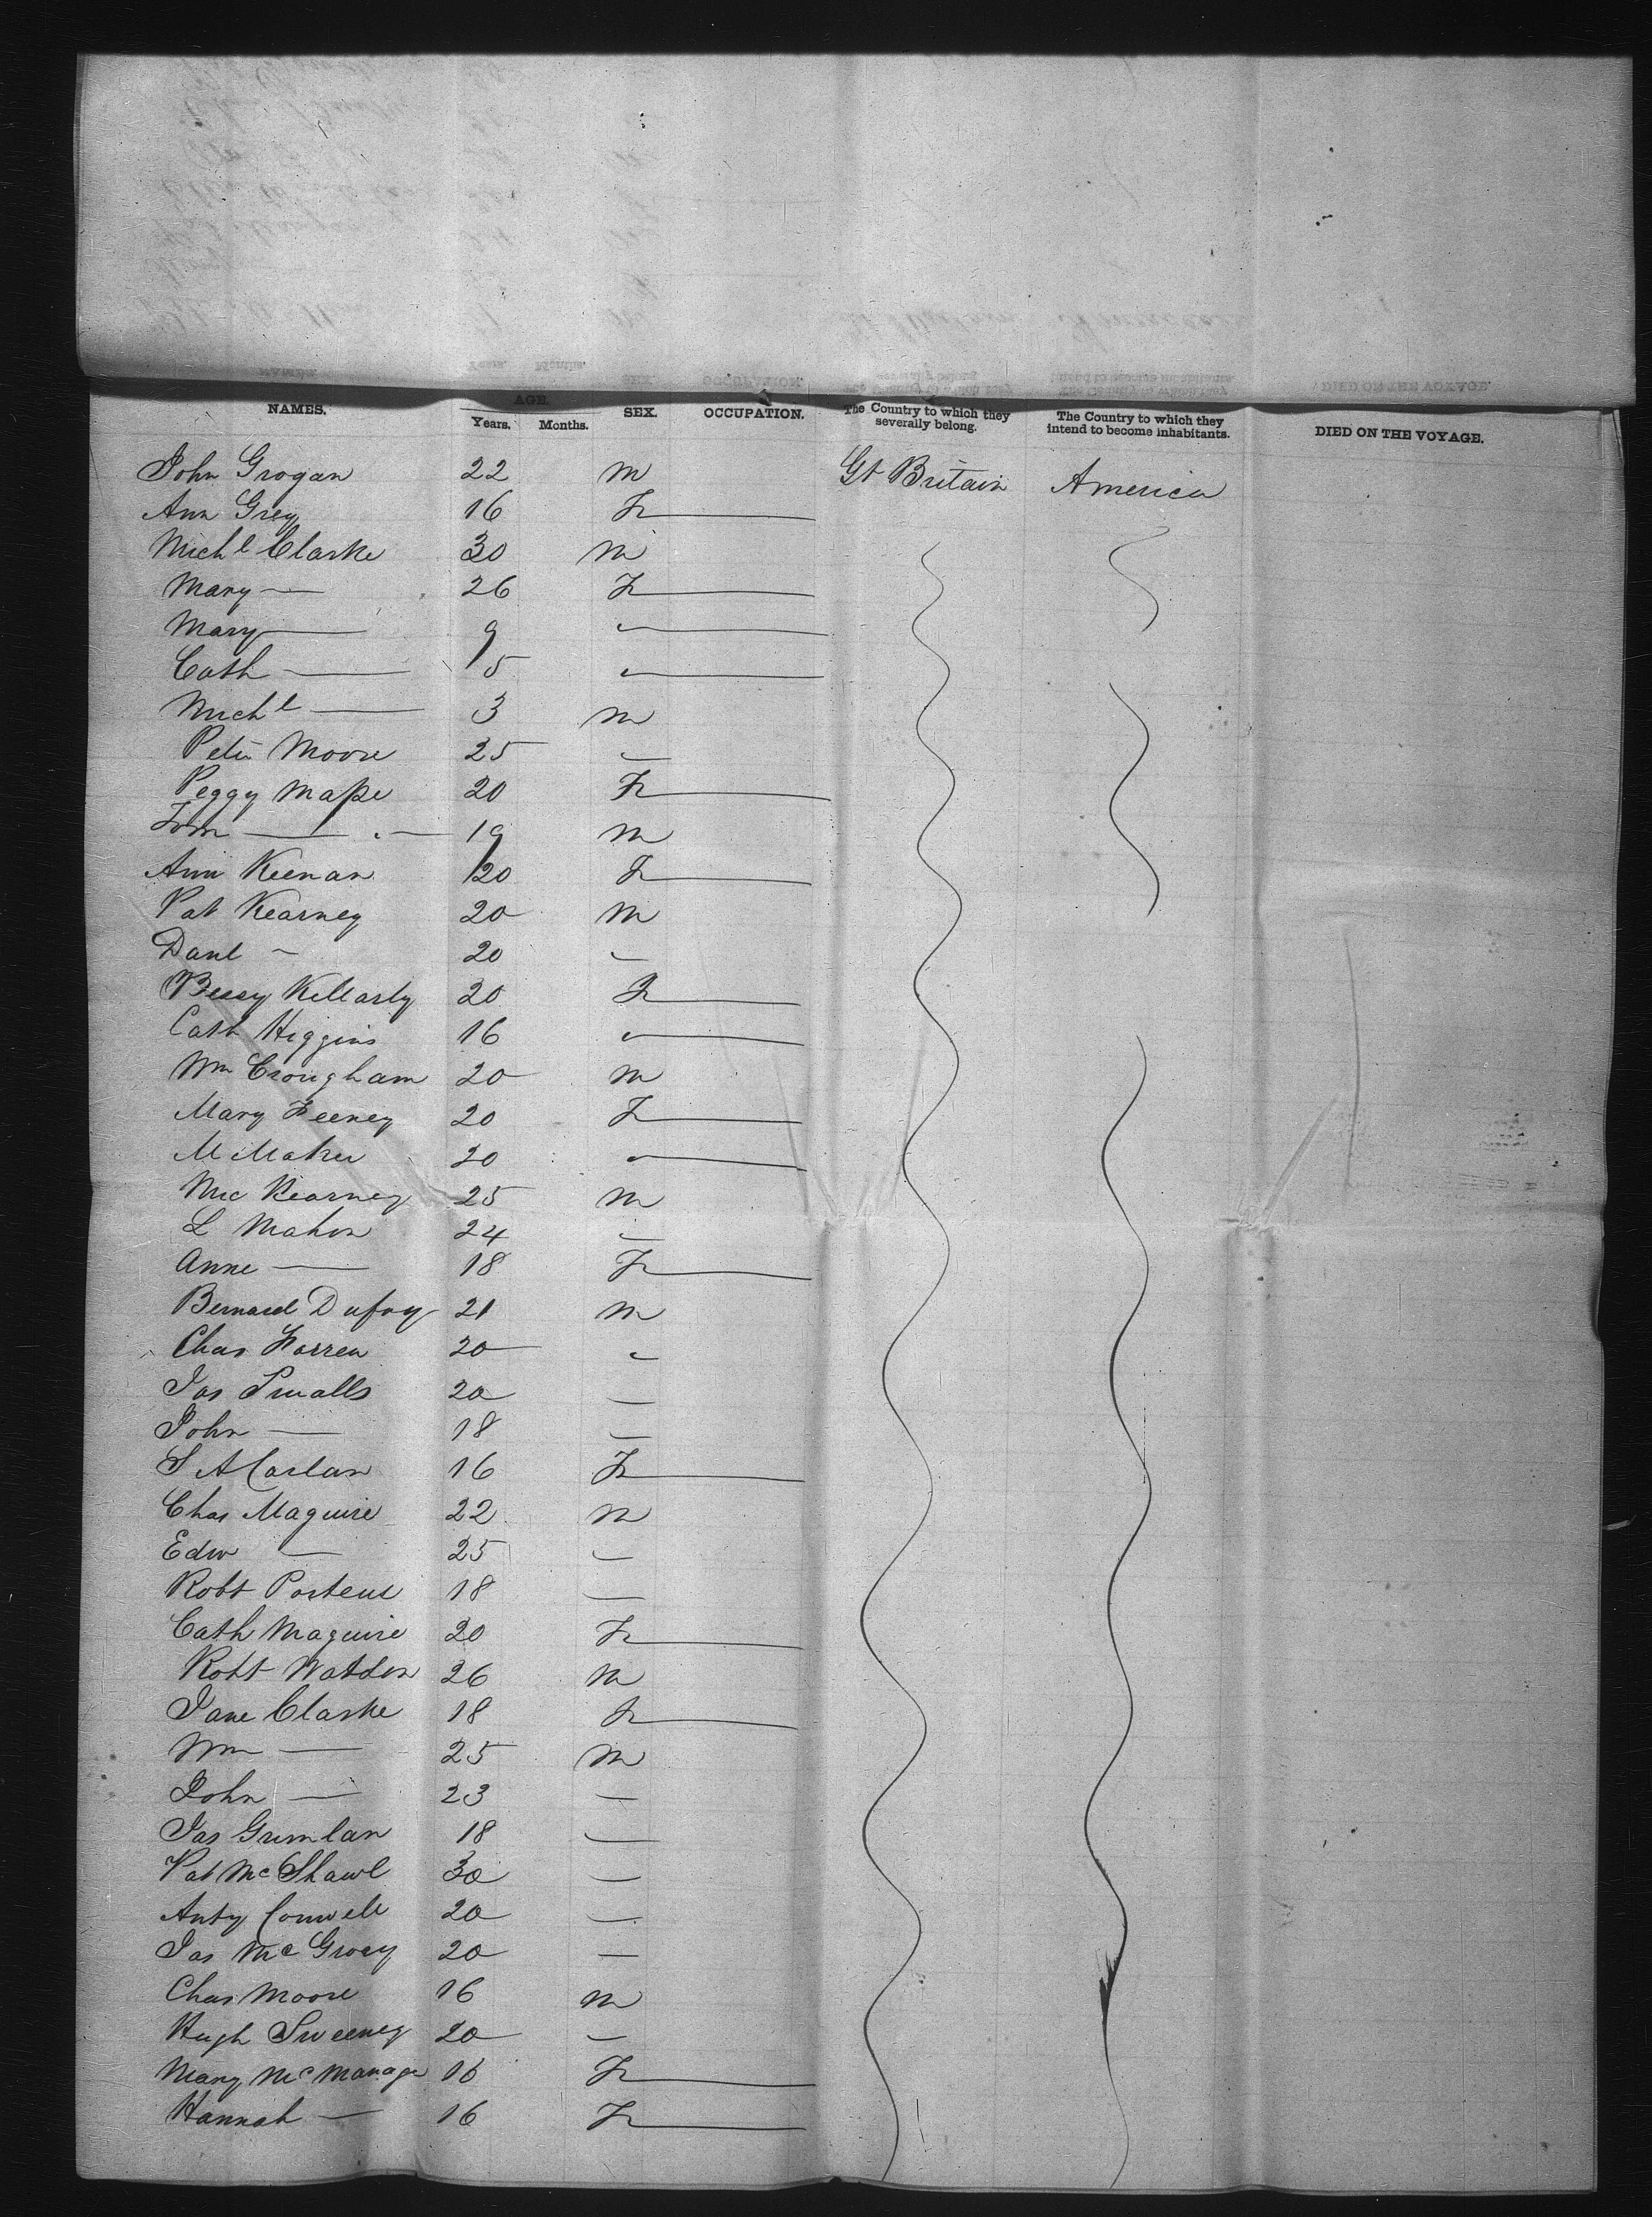 NAMES. AGE. Years. Months. SEX. OCCUPATION. The Country to which they severally belong. The Country to which they intend to become inhabitants. DIED ON THE VOYAGE.
John Grogan 22 m Gt Britain America
Ann Grey 16 F
Michl Clarke 30 m
Mary — 26 F
Mary — 9 "
Cath — 5 "
Michl — 3 m
Peter Moore 25 —
Peggy Maße 20 F
Tom — 19 m
Ann Keenan 20 F
Pat Kearney 20 m
Danl — 20 —
Bessy Kellarly 20 F
Cath Higgins 16 "
Wm Crougham 20 m
Mary Feeney 20 F
M Maher 20 "
Mic Kearney 25 m
L Mahon 24 —
Anne — 18 F
Bernard Dufoy 21 m
Chas Farren 20 "
Jas Smalls 20 —
John — 18 —
S A Carlan 16 F
Chas Maguire 22 m
Edw — 25 —
Robt Porteus 18 —
Cath Maguire 20 F
Robt Watson 26 m
Jane Clarke 18 F
Wm — 25 m
John — 23 —
Jas Grimlan 18 —
Pat McShawl 30 —
Anty Conwell 20 —
Jas McGroey 20 —
Chas Moore 16 m
Hugh Sweeney 20 —
Mary McManage 16 F
Hannah — 16 F